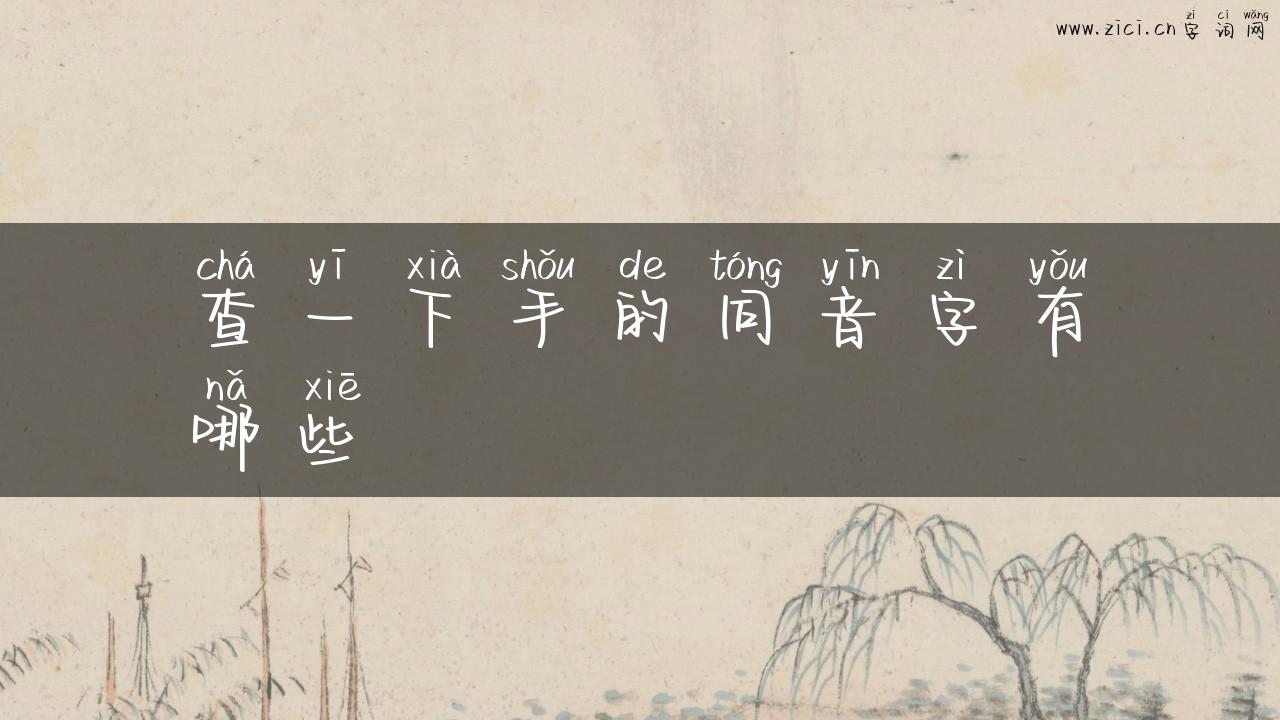 zì cí wǎng
www.zici.cn 字词网
chá yī xià shǒu de tóng yīn zì yǒu
查一下手的同音字有
nǎ xiē
哪些